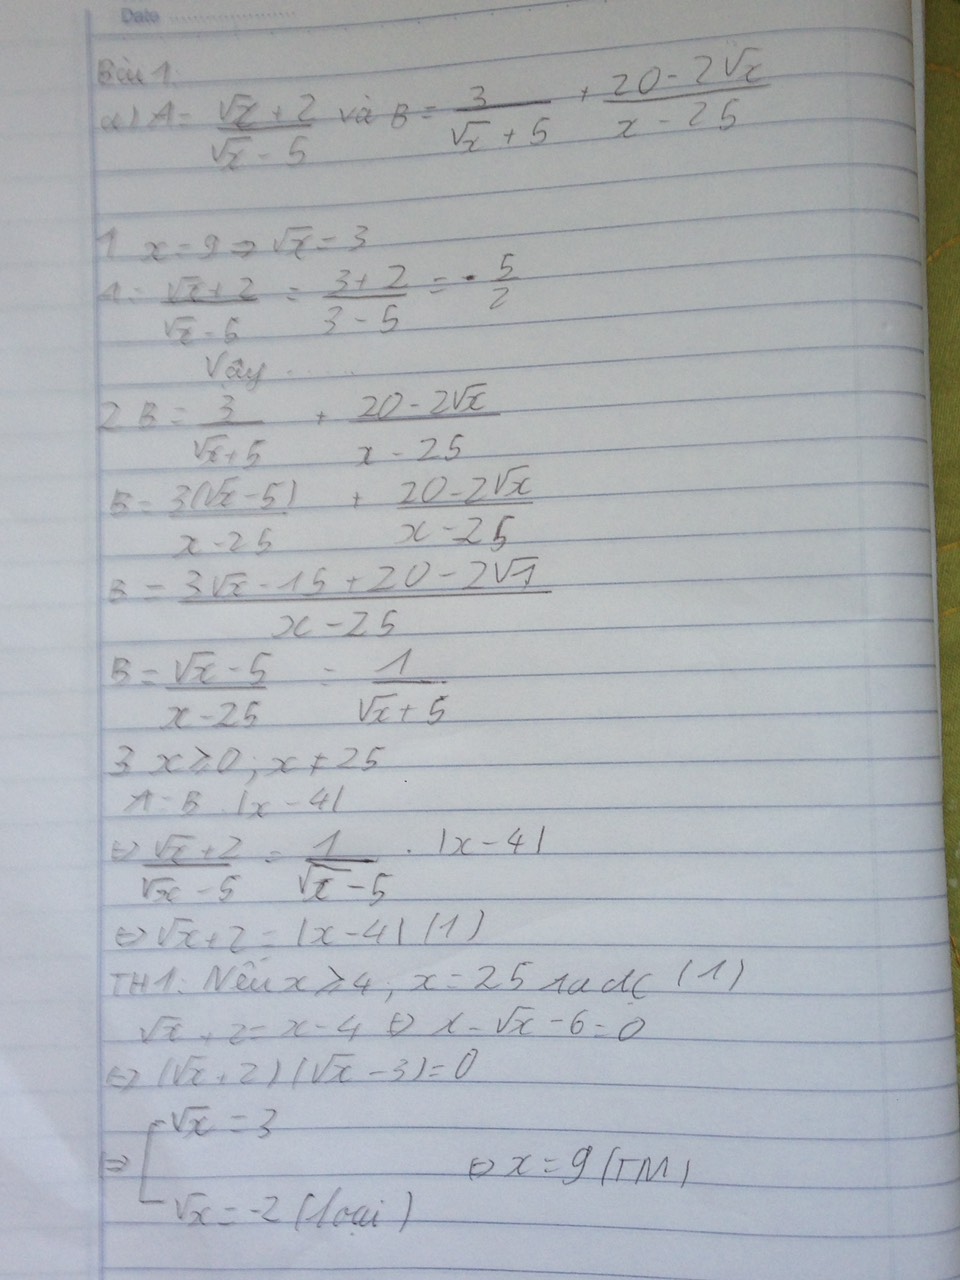 Date
Bài 1.
a) A = (√x + 2)/(√x - 5) và B = 3/(√x + 5) + (20 - 2√x)/(x - 25)
1 x = 9 ⇒ √x = 3
A = (√x + 2)/(√x - 5) = (3 + 2)/(3 - 5) = - 5/2
Vậy ........
2 B = 3/(√x + 5) + (20 - 2√x)/(x - 25)
B = 3(√x - 5)/(x - 25) + (20 - 2√x)/(x - 25)
B = (3√x - 15 + 20 - 2√1)/(x - 25)
B = (√x - 5)/(x - 25) = 1/(√x + 5)
3 x ≥ 0, x ≠ 25
A = B |x - 4|
⇔ (√x + 2)/(√x - 5) = 1/(√x - 5) . |x - 4|
⇔ √x + 2 = |x - 4| (1)
TH1: Nếu x ≥ 4, x = 25 (1)
√x + 2 = x - 4 ⇔ x - √x - 6 = 0
⇔ (√x + 2)(√x - 3) = 0
⇒ [ √x = 3
⇔ x = 9 (TM)
√x = -2 (loại)